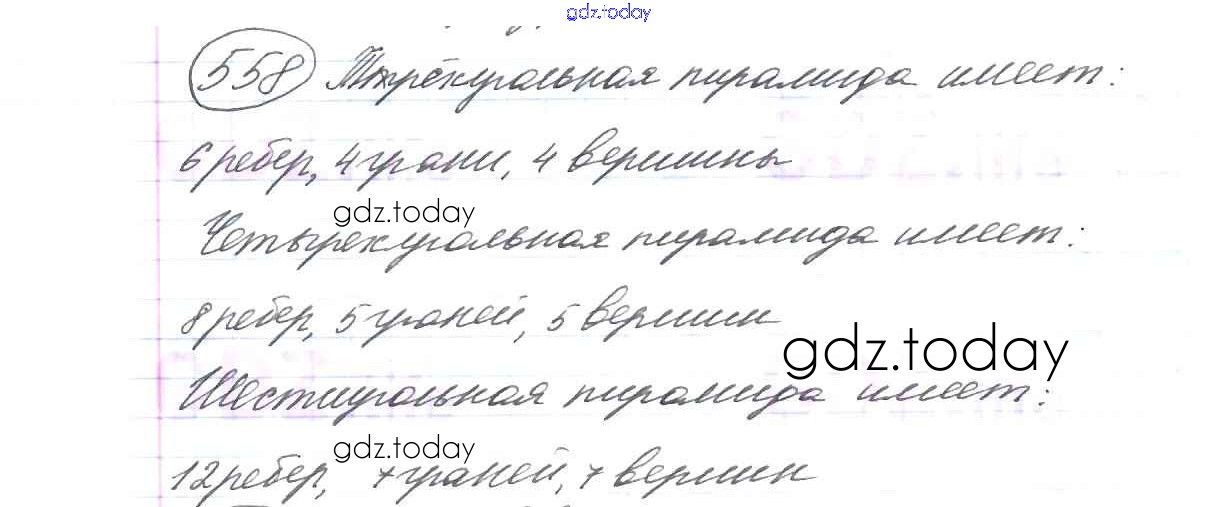 gdz.today
558 Трёхугольная пирамида имеет:
6 ребер, 4 грани, 4 вершины
gdz.today
Четырехугольная пирамида имеет:
8 ребер, 5 граней, 5 вершин
gdz.today
Шестиугольная пирамида имеет:
gdz.today
12 ребер, 7 граней, 7 вершин